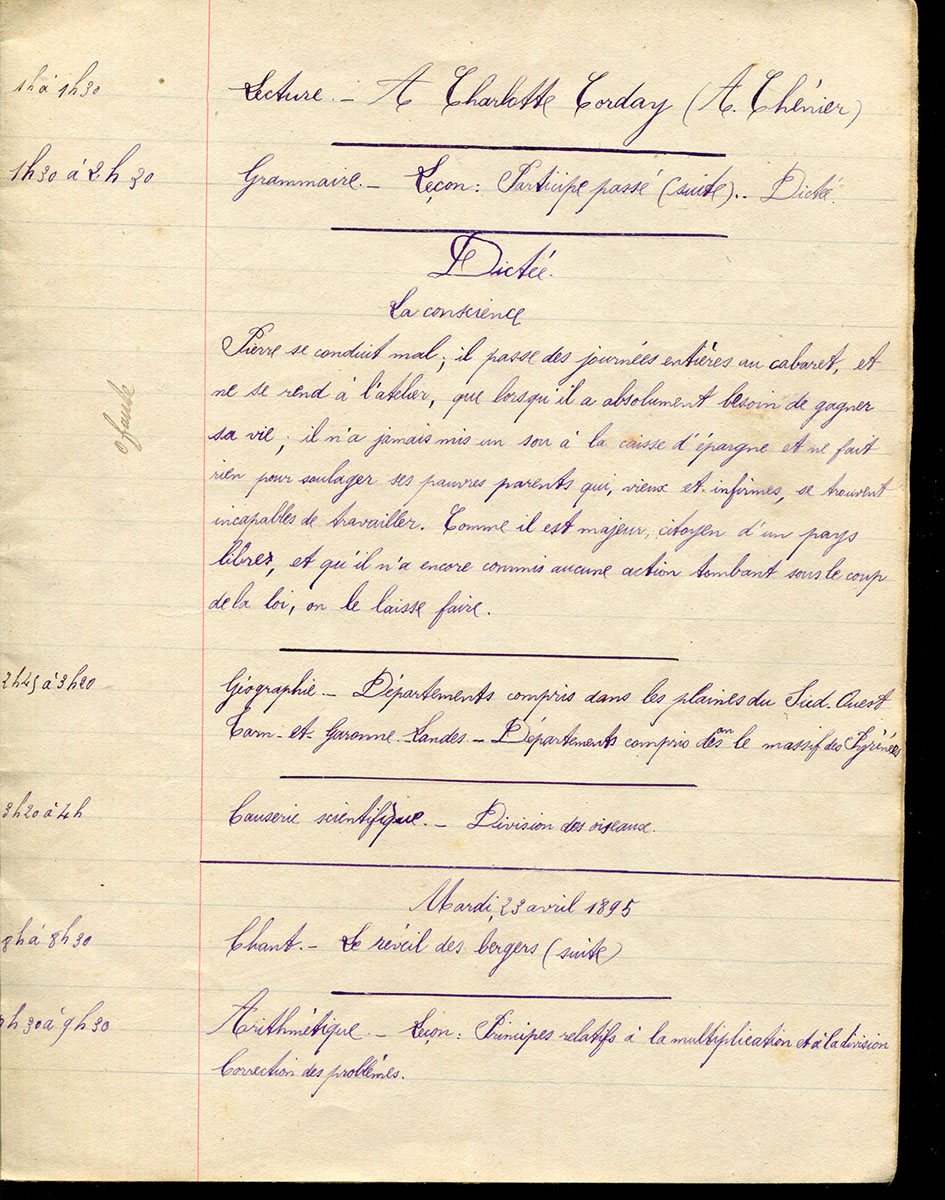 1h à 1h30
Lecture. – A Charlotte Corday (A. Chénier)
1h30 à 2h30
Grammaire. – Leçon: Participe passé (suite). – Dictée.
Dictée.
La conscience
Pierre se conduit mal; il passe des journées entières au cabaret, et
ne se rend à l'atelier, que lorsqu'il a absolument besoin de gagner
0 faute
sa vie; il n'a jamais mis un sou à la caisse d'épargne et ne fait
rien pour soulager ses pauvres parents qui, vieux et infirmes, se trouvent
incapables de travailler. Comme il est majeur, citoyen d'un pays
libre, et qu'il n'a encore commis aucune action tombant sous le coup
de la loi, on le laisse faire.
2h45 à 3h20
Géographie. – Départements compris dans les plaines du Sud-Ouest
Tarn-et-Garonne. Landes – Départements compris dans le massif des Pyrénées
3h20 à 4h
Causerie scientifique. – Division des oiseaux.
Mardi, 23 avril 1895
8h à 8h30
Chant. – Le réveil des bergers (suite)
8h30 à 9h30
Arithmétique. – Leçon: Principes relatifs à la multiplication et à la division
Correction des problèmes.